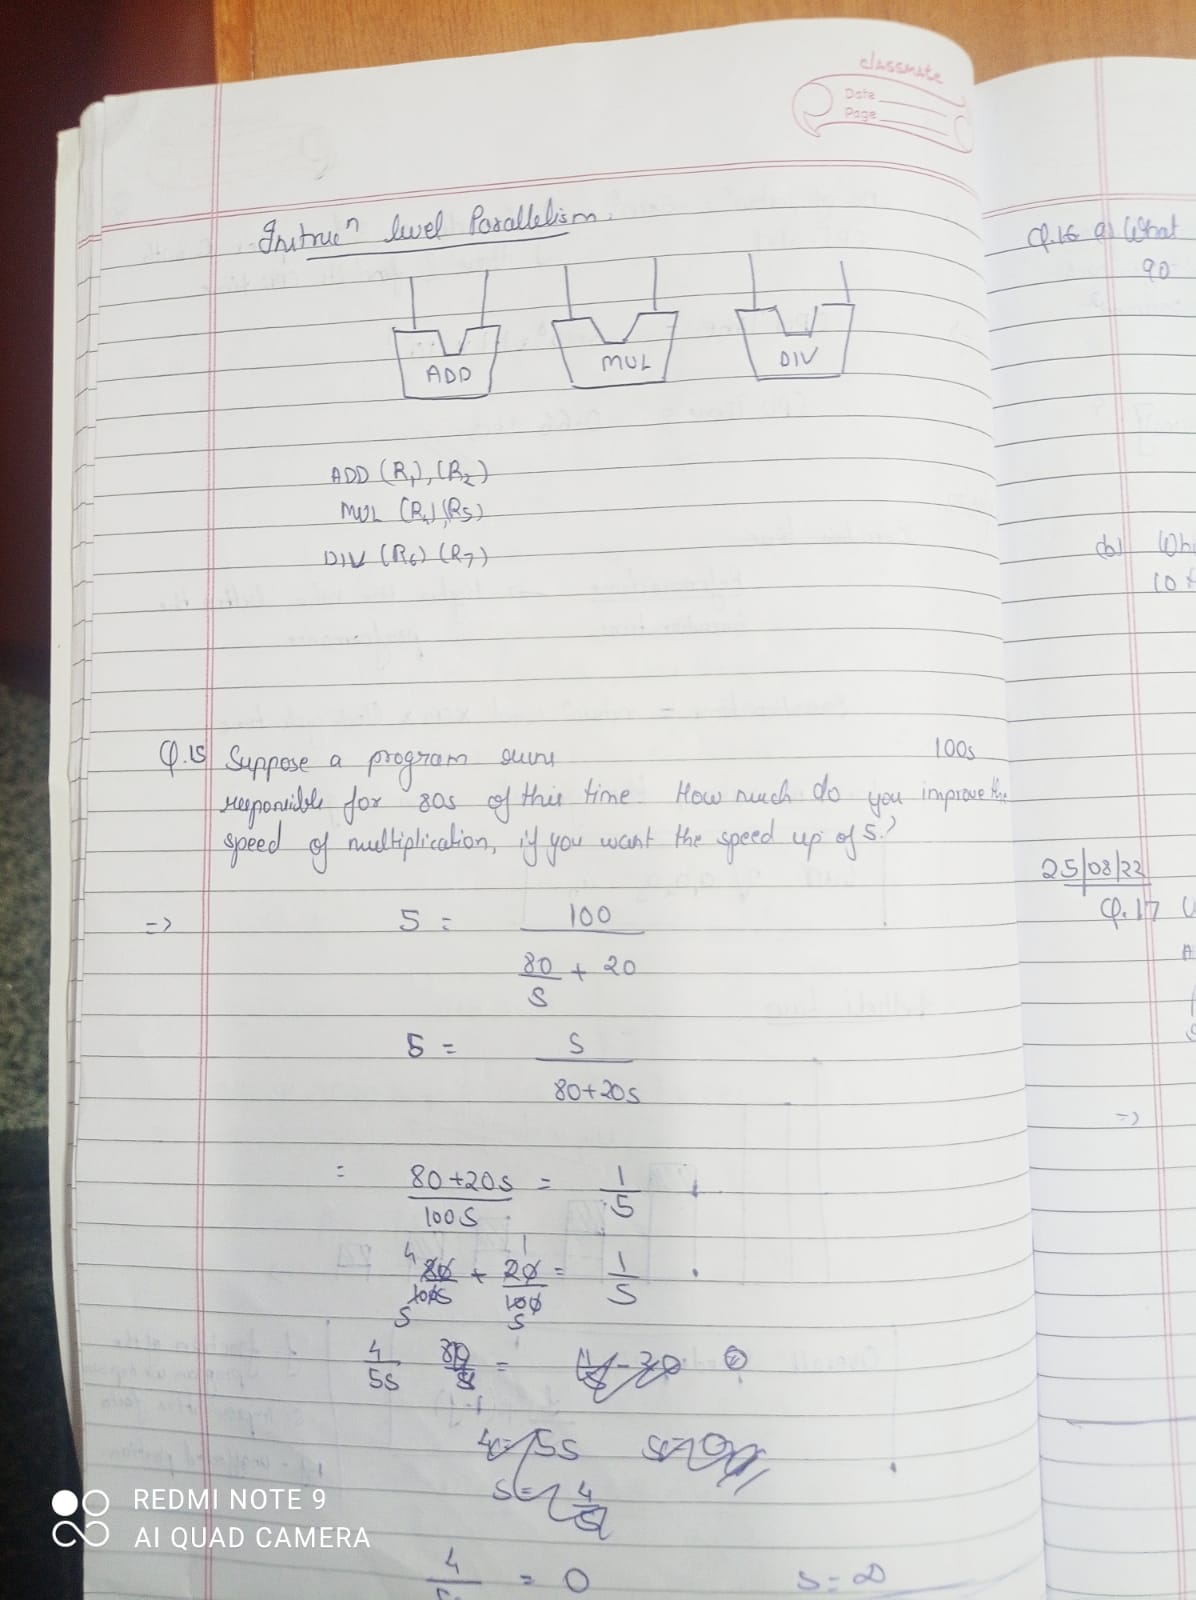 classmate
Date
Page
Instrucⁿ level Parallelism.
ADD
MUL
DIV
ADD (R1), (R2)
MUL (R4) (R5)
DIV (R6) (R7)
Q.15 Suppose a program runs 100s
responsible for 80s of this time. How much do you improve the
speed of multiplication, if you want the speed up of 5?
=> 5 = 100
80/S + 20
5 = S
80+20S
= 80+20S / 100S = 1/5
4 80/100S 5 + 1 20/100 5 = 1/5
4/5S = 0
4 = 5S
S = 4/5
4 = 0 S = ∞
Q.16 a) What
90
(b)
10
25/08/22
Q.17
=>
REDMI NOTE 9
AI QUAD CAMERA